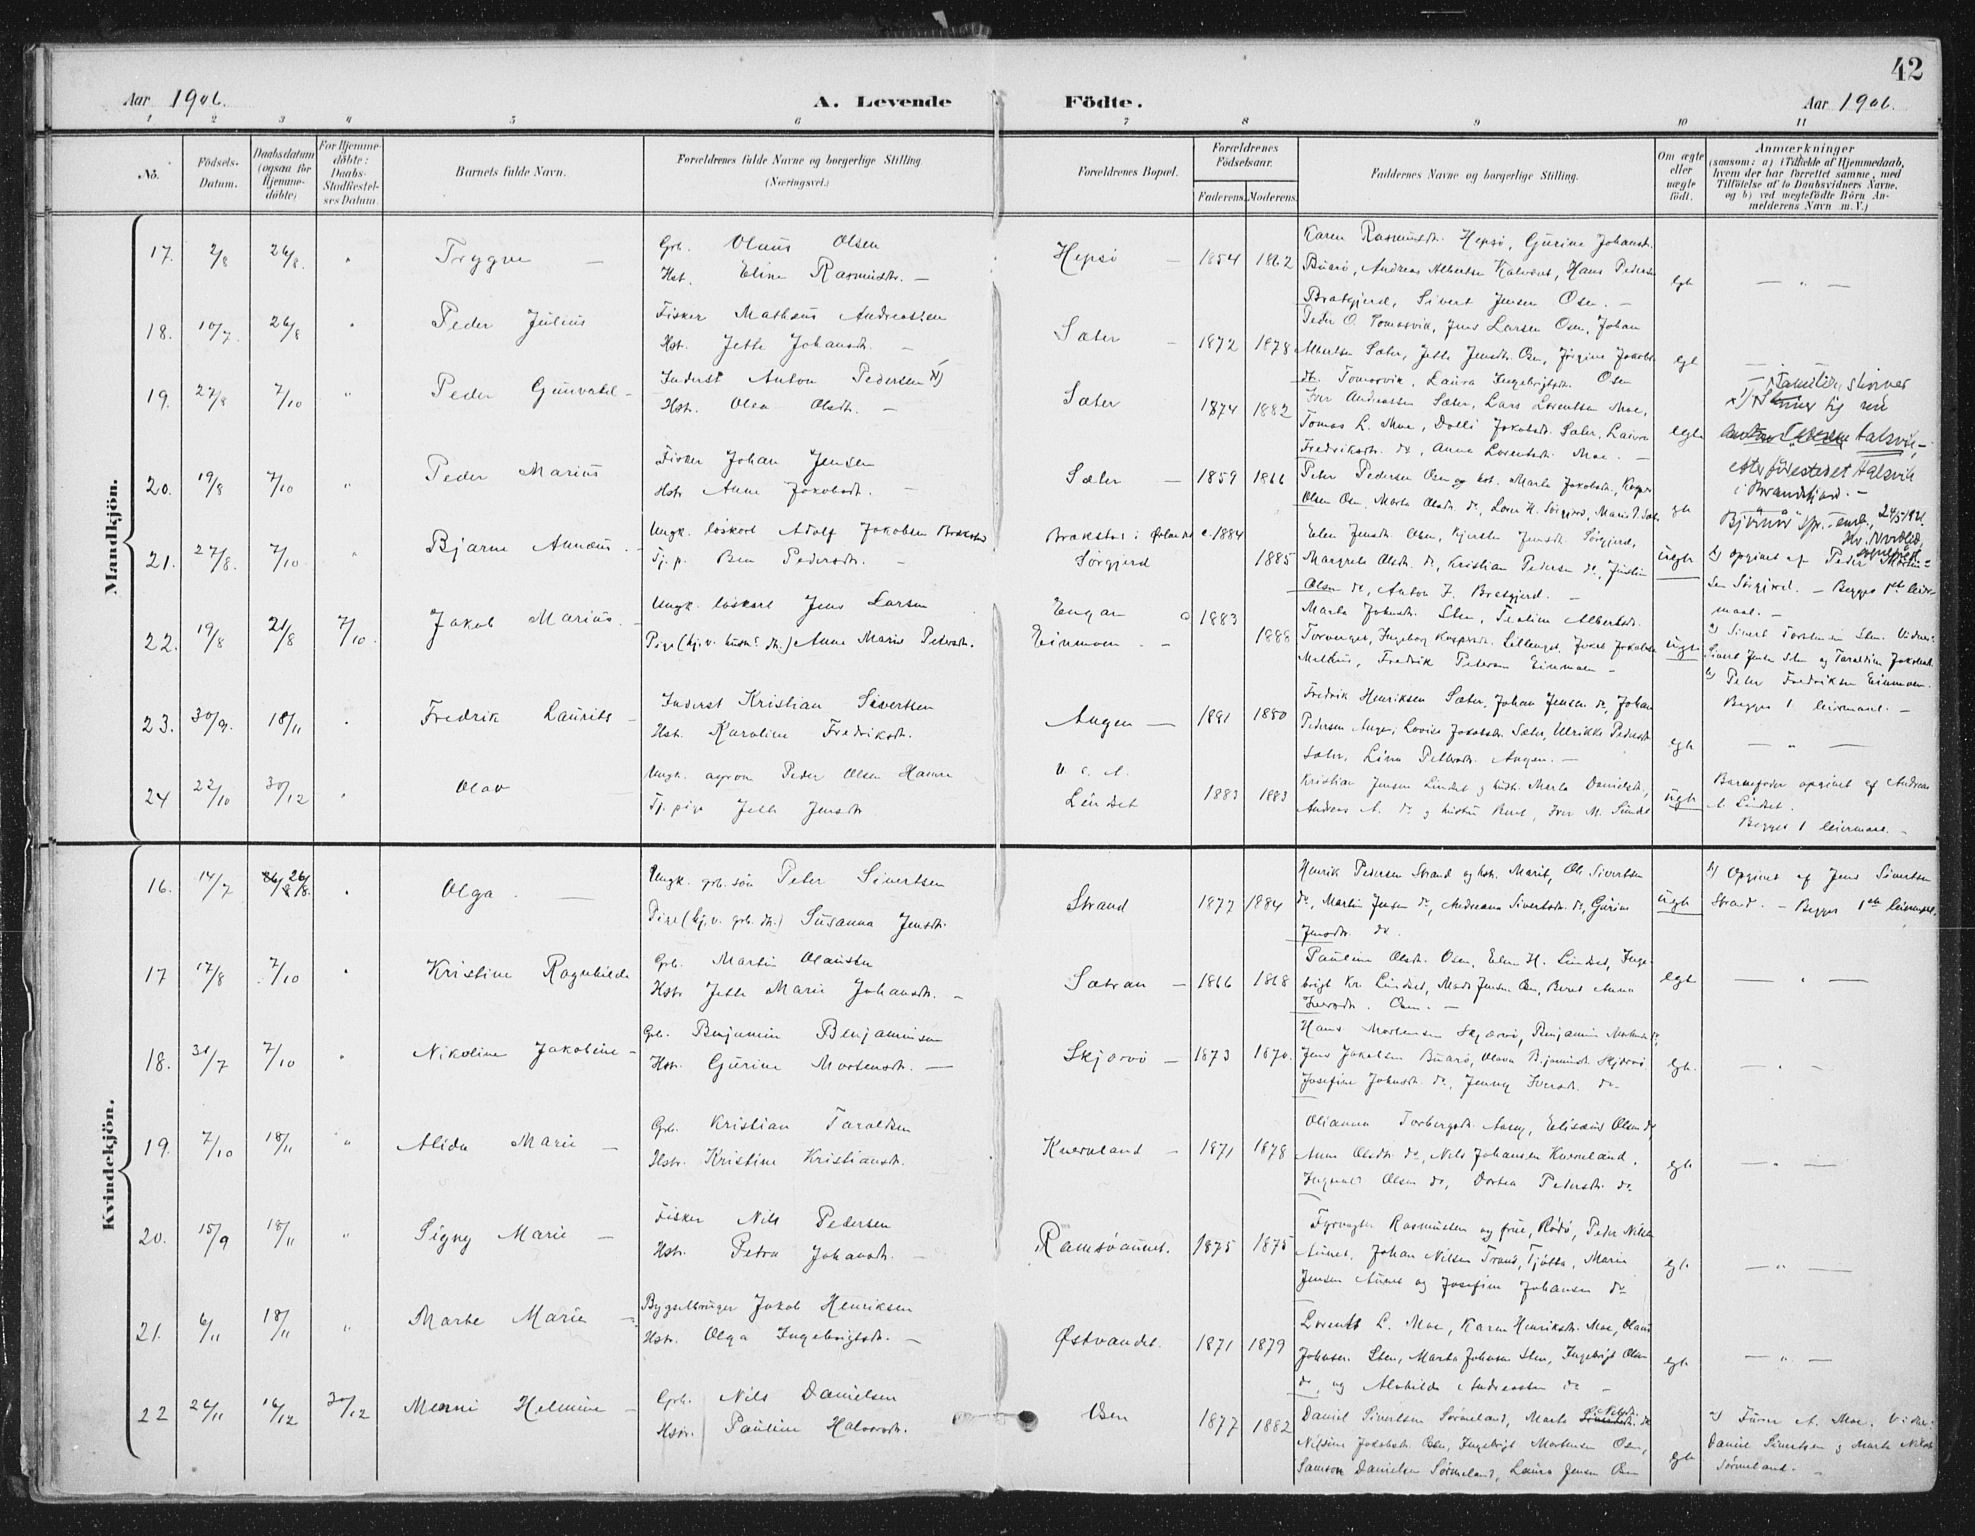 42
Aar 1906.
A. Levende Födte.
Aar 1906.
1 2 3 4 5 6 7 8 9 10 11
No.
Födsels-Datum.
Daabsdatum (ogsaa for Hjemme-döbte)
For Hjemme-döbte: Daabs-Stadfæstel-ses Datum.
Barnets fulde Navn.
Forældrenes fulde Navne og borgerlige Stilling. (Næringsvei.)
Forældrenes Bopæl.
Forældrenes Födselsaar.
Faderens. Moderens.
Faddernes Navne og borgerlige Stilling.
Om ægte eller uægte födt.
Anmærkninger
(saasom: a) i Tilfælde af Hjemmedaab,
hvem der har forrettet samme, med
Tilföielse af to Daabsvidners Navne,
og b) ved uægtefödte Börn An-
melderens Navn m. V.)
Mandkjön.
17. 2/8 26/8. " Trygve —
Grb. Olaus Olsen
Hst. Eline Rasmusdtr. —
Hepsö — 1854 1862
Karen Rasmusdtr. Hepsö, Gurine Johansdtr.
Buarö, Andreas Albertsen Kalvøens, Hans Pedersen
Bratgjerd, Sivert Jensen Osen. —
egte — " —
18. 10/7. 26/8 " Peder Julius
Fisker Matheus Andreassen
Hst. Jette Johansdtr. —
Sæter — 1872 1878
Peder O. Tomasvik, Jens Larsen Osen, Johan
Albertsen Sæter, Jette Jensdtr. Osen, Jørgine Jakobs
dtr. Tomasvik, Laura Ingebrigtsdtr. Osen
egt
19. 27/8 7/10 " Peder Gunvald —
Inderst Anton Pedersen
Hst. Olea Olsdtr. —
Sæter 1874 1882
Iver Andreassen Sæter, Lars Lorentsen Moe,
Tomas L. Moe, Dolli Jakobsdtr. Sæter, Laura
Fredriksdtr. do, Anna Lorentsdtr. Moe. —
egte
Familien skriver
sig nu
Halsvik,
efter farestedet Halsvik
i Brandsfjord. —
Björnör spr. emb., 24/5-1921.
20. 19/8 7/10 " Peder Marius
Fisker Johan Jensen
Hst. Anne Jakobsdtr. —
Sæter — 1859 1866
Peter Pedersen Osen og hst. Marta Jakobsdtr., Kasper
Olsen Osen, Marta Olsdtr. do, Lorn H. Sörgjerd, Marie P. Sæter
21. 27/8. 7/10 " Bjarne Annæus. —
Ungk. löskarl Adolf Jakobsen Brakstad
Tj. p. Bea Pedersdtr. —
Brakstad i
Sörgjerd
c. 1884 1885
Elen Jensdtr. Osen, Kjersten Jensdtr. Sörgjerd,
Margrete Olsdtr. do, Kristian Pedersen do, Justin
Olsen do, Anton J. Bratgjerd. —
uegte
Opgivet af Peder Martin-
sen Sörgjerd. — Begges 1ste leier-
maal. —
22. 19/8 21/8 7/10. Jakob Marius. —
Ungk. löskarl Jens Larsen
Pige (hj. v. husm. dtr.) Anne Marie Petersdtr.
Engan
Einmoen — 1883 1888
Marta Johnsdtr. Sten, Teoline Albertsdtr.
Torvenget, Ingeborg Kaspersdtr. Lillenget, Jakob Jakobsen
Melhus, Fredrik Petersen Einmoen —
uegte
Sivert Torstensen Sten. Vidner:
Sivert Jensen Sten og Taraldine Jakobsdtr.
Peter Fredriksen Einmoen.
Begges 1 leiermaal. —
23. 30/9. 18/11 " Fredrik Laurits —
Inderst Kristian Sivertsen
Hst. Karoline Fredriksdtr.
Angen — 1881 1880
Fredrik Henriksen Sæter, Johan Jensen do, Johan
Pedersen Angen, Lovise Jakobsdtr. Sæter, Ulrikke Pedersdtr.
Sæter, Lina Pettersdtr. Angen. —
egte — " —
24 22/10 30/12 " Olav
Ungk. agron Peder Olsen Hamre
Tj. pige Jette Jensdtr.
Lindset 1883 1883
Kristian Jensen Lindset og hustr. Marta Danielsdtr.,
Andreas A. do og hustru Beret, Iver M. Sundet
uegte
Barnefader opgivet af Andreas
A. Lindset.
Begges 1 leiermaal. —
Kvindekjön.
16. 14/7 26/8. " Olga. —
Ungk. grb. sön Peter Sivertsen
Pige (hj. v. grb. dtr.) Susanna Jensdtr.
Strand 1877 1884
Henrik Petersen Strand og hst. Marit, Ole Sivertsen
do, Martin Jensen do, Andreana Sivertsdtr. do, Gurine
Jensdtr. do.
uegte
Opgivet af Jens Sivertsen
Strand. — Begges 1ste leiermaal.
17 17/8 7/10 " Kristine Ragnhilde
Grb. Martin Olaussen
Hst. Jette Marie Johansdtr. —
Sætran — 1866 1868
Pauline Olsdtr. Osen, Elen H. Lindset, Inge-
brigt Kr. Lindset, Mads Jensen Osen, Beret Anna
Iversdtr. Osen. —
egte — " —
18. 31/7 7/10 " Nikoline Jakobine —
Grb. Benjamin Benjaminsen
Hst. Gurine Mortensdtr. —
Skjærvö — 1873 1870.
Hans Mortensen Skjærvö, Benjamin Mortensen do,
Jens Jakobsen Buarö, Olava Benjaminsdtr. Skjærvö
Josefine Johnsdtr. do, Jenny Iversdtr. do
egte. — " —
19. 7/10 18/11 " Alida Marie —
Grb. Kristian Taraldsen
Hst. Kristine Kristiansdtr.
Kverneland — 1871 1878
Olianna Torbergsdtr. Aasn, Eliseus Olsen do,
Anna Olsdtr. do, Nils Johansen Kverneland,
Ingvald Olsen do, Dortea Pedersdtr. do
egte — " —
20. 15/9 18/11 " Signy Marie —
Fisker Nils Pedersen
Hst. Petra Johansdtr. —
Ramsövaunet. 1875 1875
Fyrvogter Rasmussen og frue, Rödö, Peder Nilsen
Aunet, Johan Nilsen Trand, Tjötta, Marie
Jensen Aunet og Josefine Johansen do
egte — " —
21. 6/11 18/11 " Marte Marie —
Bygselbruger Jakob Henriksen
Hst. Olga Ingebrigtsdtr. —
Östvandet. 1871 1879
Lorents L. Moe, Karen Henriksdtr. Moe, Olaus
Johnsen Sten, Marta Johnsen Sten, Ingebrigt Olsen
do, og Mathilde Andreassen do —
egte — " —
22 24/11 16/12 30/12 Menni Helmine —
Grb. Nils Danielsen
Hst. Pauline Halvorsdtr.
Osen 1877 1882
Daniel Sivertsen Sörmeland, Marta Nilsdtr. do
Nilsine Jakobsdtr. Osen, Ingebrigt Mortensen Osen,
Samson Danielsen Sörmeland, Laura Jensen Osen
egte
A. Moe. Vidner:
Daniel Sivertsen og Marta Nilsdtr.
Sörmeland. —